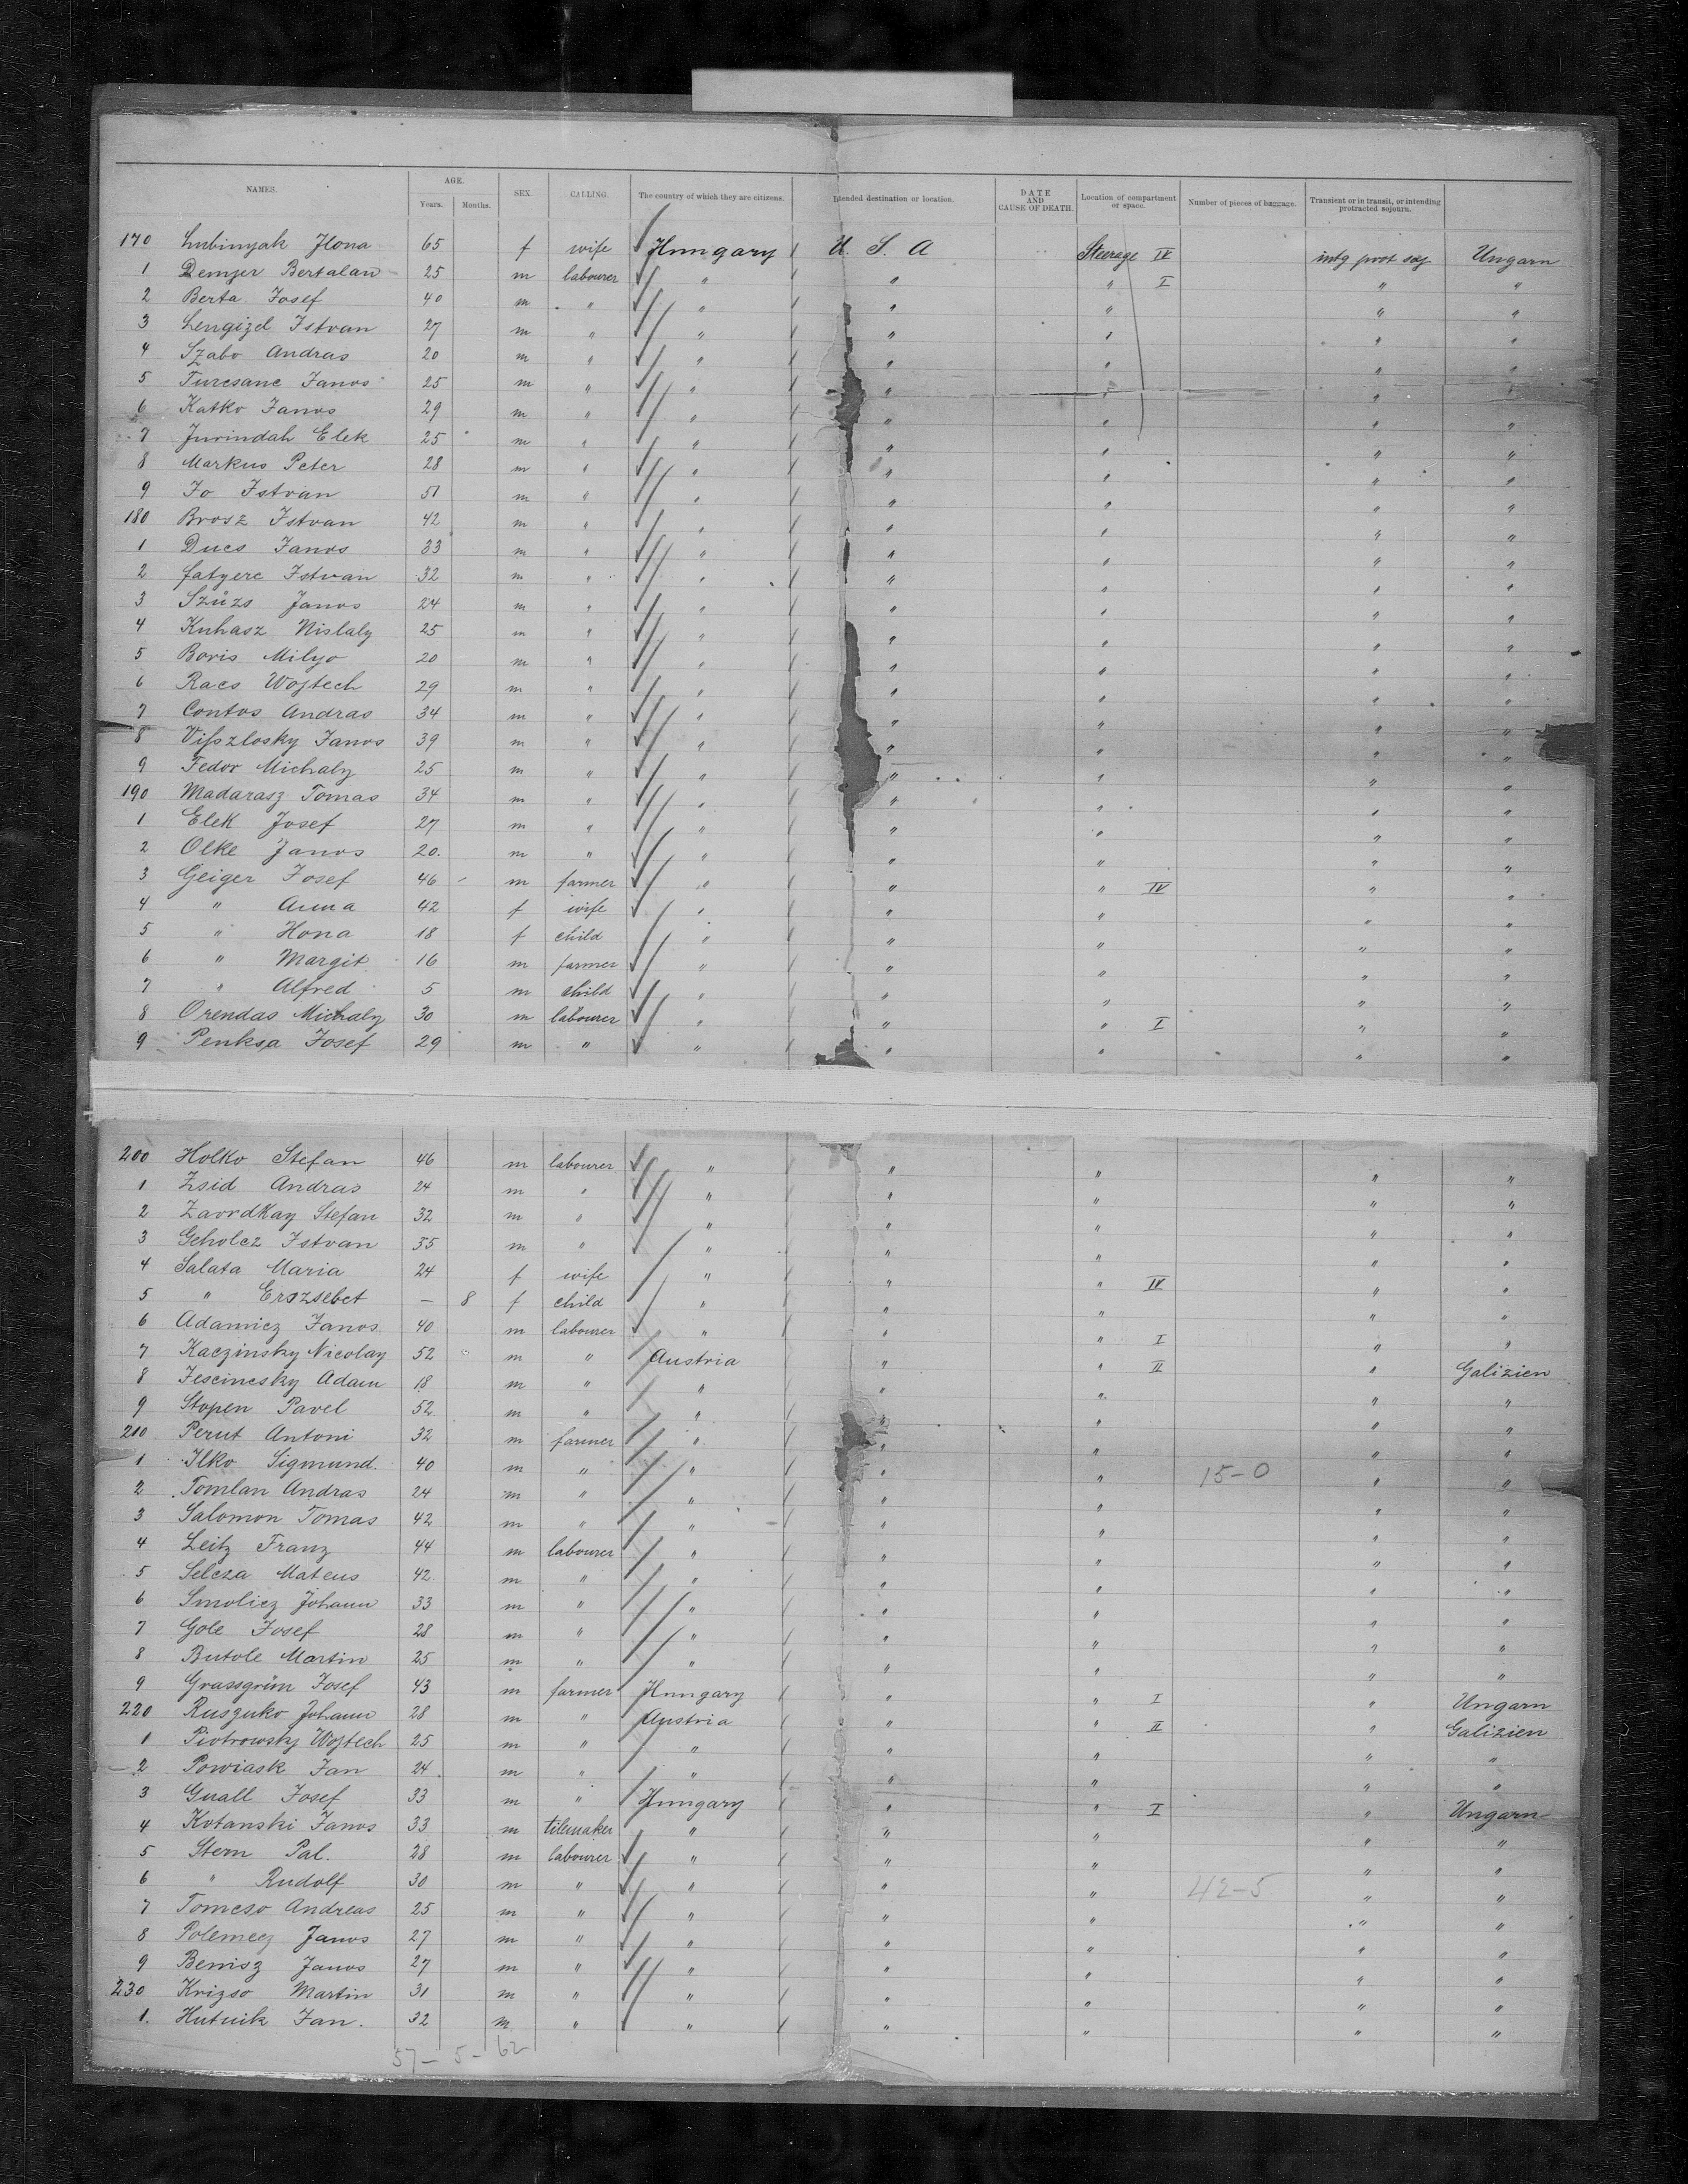 NAMES. AGE. Years. Months. SEX. CALLING. The country of which they are citizens. Intended destination or location. DATE AND CAUSE OF DEATH. Location of compartment or space. Number of pieces of baggage. Transient or in transit, or intending protracted sojourn.
170 Lubinyak Ilona 65 f wife Hungary U. S. A Steerage IV intg prot soj Ungarn
1 Demjer Bertalan 25 m labourer " " " I " "
2 Berta Josef 40 m " " " " " "
3 Lengizel Istvan 27 m " " " " " "
4 Szabo Andras 20 m " " " " " "
5 Turcsanc Janos 25 m " " " " " "
6 Katko Janos 29 m " " " " " "
7 Jurindah Elek 25 m " " " " " "
8 Markus Peter 28 m " " " " " "
9 Jo Istvan 51 m " " " " " "
180 Brosz Istvan 42 m " " " " " "
1 Ducs Janos 33 m " " " " " "
2 fatyerc Istvan 32 m " " " " " "
3 Szüzs Janos 24 m " " " " " "
4 Kuhasz Nislaly 25 m " " " " " "
5 Boris Milyo 20 m " " " " " "
6 Racs Wojtech 29 m " " " " " "
7 Contos Andras 34 m " " " " " "
8 Viszlosky Janos 39 m " " " " " "
9 Fedor Michaly 25 m " " " " " "
190 Madarasz Tomas 34 m " " " " " "
1 Elek Josef 27 m " " " " " "
2 Olke Janos 20. m " " " " " "
3 Geiger Josef 46 m farmer " " " IV " "
4 " Anna 42 f wife " " " " "
5 " Ilona 18 f child " " " " "
6 " Margit 16 m farmer " " " " "
7 " Alfred 5 m child " " " " "
8 Orendas Michaly 30 m labourer " " " I " "
9 Penksa Josef 29 m " " " " " "
200 Holko Stefan 46 m labourer " " " " "
1 Zsid Andras 24 m " " " " " "
2 Zavrdkay Stefan 32 m " " " " " "
3 Geholcz Istvan 35 m " " " " " "
4 Salata Maria 24 f wife " " " IV " "
5 " Erszsebet — 8 f child " " " " "
6 Adamicz Janos 40 m labourer " " " I " "
7 Kaczinsky Nicolay 52 m " Austria " " II " Galizien
8 Jescinesky Adam 18 m " " " " " "
9 Stopen Pavel 52 m " " " " " "
210 Perut Antoni 32 m farmer " " " " "
1 Ilko Sigmund. 40 m " " " " 15-0 " "
2 Tomlan Andras 24 m " " " " " "
3 Salomon Tomas 42 m " " " " " "
4 Leitz Franz 44 m labourer " " " " "
5 Selcza Mateus 42 m " " " " " "
6 Smolicz Johann 33 m " " " " " "
7 Gole Josef 28 m " " " " " "
8 Butole Martin 25 m " " " " " "
9 Grassgrün Josef 43 m farmer Hungary " " I " Ungarn
220 Ruszuko Johann 28 m " Austria " " II " Galizien
1 Piotrowsky Wojtech 25 m " " " " " "
2 Powiask Jan 24 m " " " " " "
3 Guall Josef 33 m " Hungary " " I " Ungarn
4 Kotanski Janos 33 m tilemaker " " " " "
5 Stern Pal. 28 m labourer " " " " "
6 " Rudolf 30 m " " " " 42-5 " "
7 Tomcso Andreas 25 m " " " " " "
8 Polemecz Janos 27 m " " " " " "
9 Benisz Janos 27 m " " " " " "
230 Krizso Martin 31 m " " " " " "
1. Hutnik Jan. 32 m " " " " " "
57 - 5 - 62